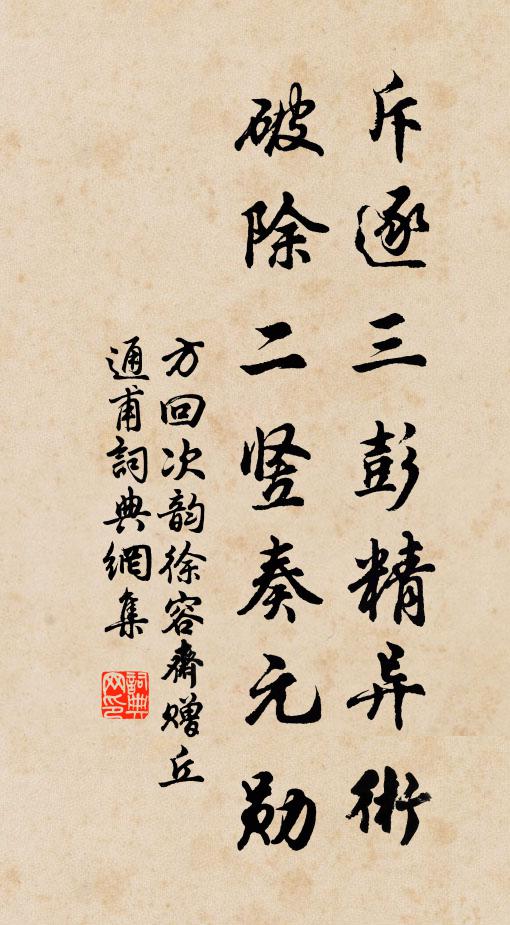 斥逐三彭精异術
破除二竖奏元勋
方回次韵徐容齋赠丘
通甫詞典網集
詞典
网印